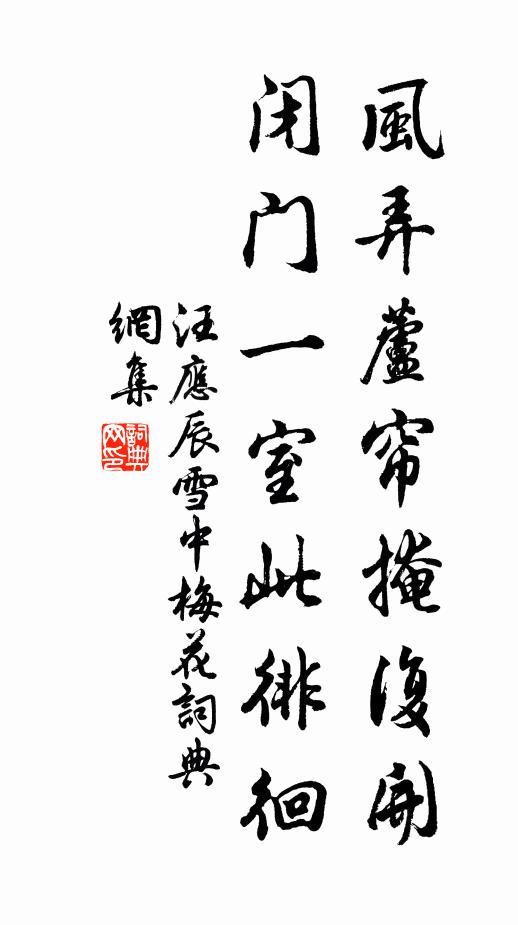 風弄蘆帘掩復開
闭门一室此徘徊
汪應辰雪中梅花詞典
網集
詞典
网印